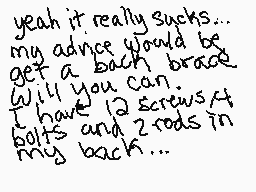 yeah it really sucks...
my advice would be
get a back brace
Will you can.
I have 12 screws, 4
bolts and 2 rods in
my back...